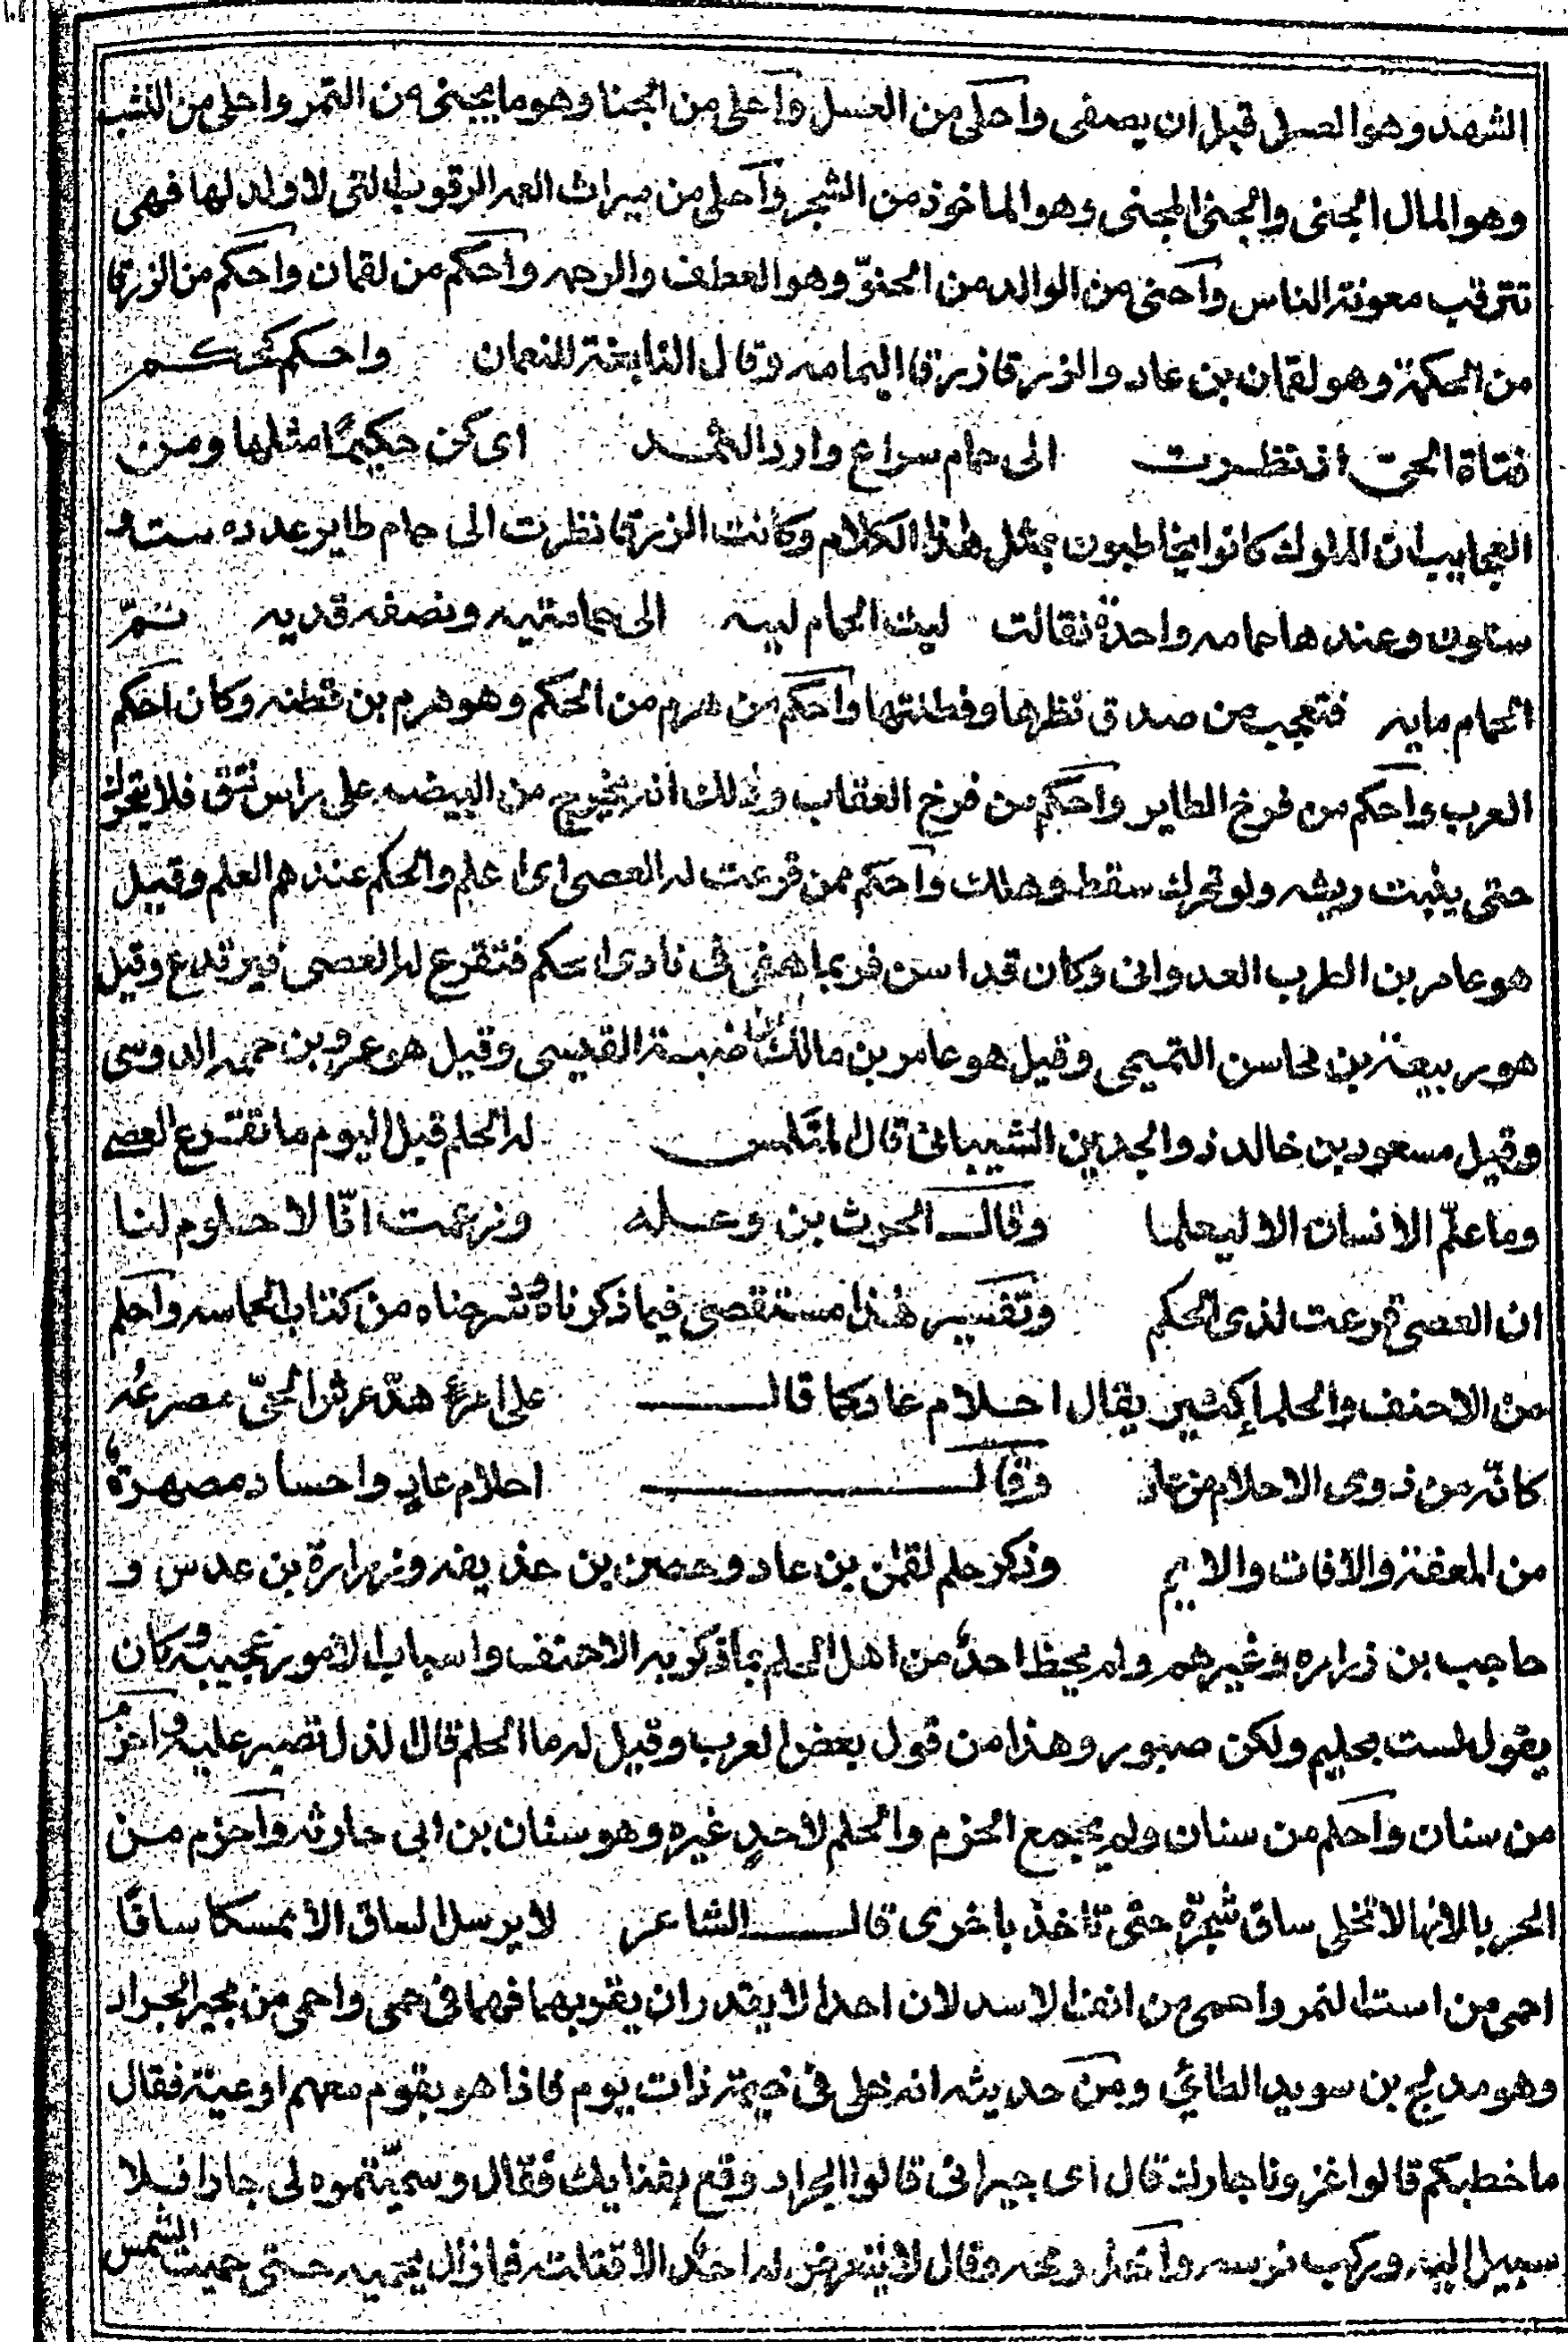 الشهد وهو العسل قبل ان يصفى واحلى من العسل واحلى من الجنا وهو ما يجنى من التمر واحلى من النشب
وهو المال الجنى والجنى المجنى وهو الماخوذ من الشجر واحلى من ميراث العمه الرقوب التى لا ولد لها فهى
تترقب معونة الناس واحنى من الوالد من الحنوّ وهو العطف والرحمه واحكم من لقمان واحكم من الزرقا
من الحكمة وهو لقمان بن عاد والزرقا زرقا اليمامه وقال النابغة للنعمان واحكم كحكم
فتاة الحى اذ نظرت الى حمام سراع وارد الثمد اى كن حكيمًا مثلها ومن
العجايب ان الملوك كانوا يخاطبون بمثل هذا الكلام وكانت الزرقا نظرت الى حمام طاير عدده ستة و
ستون وعندها حمامه واحدة فقالت ليت الحمام ليه الى حمامتيه ونصفه قديه تمّ
الحمام مايه فتعجب من صدق نظرها وفطنتها واحكم من هرم من الحكم وهو هرم بن قطنه وكان احكم
العرب واحكم من فرخ الطاير واحكم من فرخ العقاب وذلك انه يخرج من البيضه على راس نتق فلا يتحرك
حتى ينبت ريشه ولو تحرك سقط وهلك واحكم ممن قرعت له العصى اى اعلم والحكم عندهم العلم وقيل
هو عامر بن الظرب العدوانى وكان قد اسن فربما هفى فى نادى الحكم فتقرع له العصى فيرتدع وقيل
هو ربيعة بن مخاسن التميمى وقيل هو عامر بن مالك بن ضبة القيسى وقيل هو عمرو بن حممه الدوسى
وقيل مسعود بن خالد ذو الجدين الشيبانى قال المتلمس لذا الحلم قبل اليوم ما تقرع العصى
وما علّم الانسان الا ليعلما وقال الحرث بن وعله وزعمت انّا لا حلوم لنا
ان العصى قرعت لذى الحكم وتفسير هذا مستقصى فيما ذكرناه وشرحناه من كتاب الحماسه واحلم
من الاحنف والحلما كثير يقال احلام عاد كما قال على امرئ هدّ عرش الحىّ مصرعُه
كانّه من ذوى الاحلام من عاد وقال احلام عادٍ واحساد مصهرة
من المعفة والافات والاثم وذكر حلم لقمن بن عاد وحصن بن حذيفه وزرارة بن عدس و
حاجب بن زراره وغيرهم ولم يحظ احدٌ من اهل الحلم بما ذكر به الاحنف واسباب الامور عجيبه وكان
يقول لست بحليم ولكن صبور وهذا من قول بعض العرب وقيل له ما الحلم قال الذل تصبر عليه واحزم
من سنان واحلم من سنان ولم يجتمع الحزم والحلم لاحدٍ غيره وهو سنان بن ابى حارثه واحزم من
الحربا لانها لا تخلى ساق شجرة حتى تاخذ باخرى قال الشاعر لا يرسل الساق الا ممسكا ساقًا
احمى من است النمر واحمى من انف الاسد لان احدا لا يقدر ان يقربهما فهما فى حمى واحمى من مجير الجراد
وهو مدلج بن سويد الطائي ومن حديثه انه خلى فى خيمة ذات يوم فاذا هو بقوم معهم اوعية فقال
ما خطبكم قالوا غزونا جارك قال اى جيرانى قالوا الجراد وقع بفنايك فقال وسميّتموه لى جارا فلا
سبيل اليه وركب فرسه واخذ رمحه وقال لا يتعرض له احدٌ الا قتلته فما زال يحميه حتى حميت الشمس